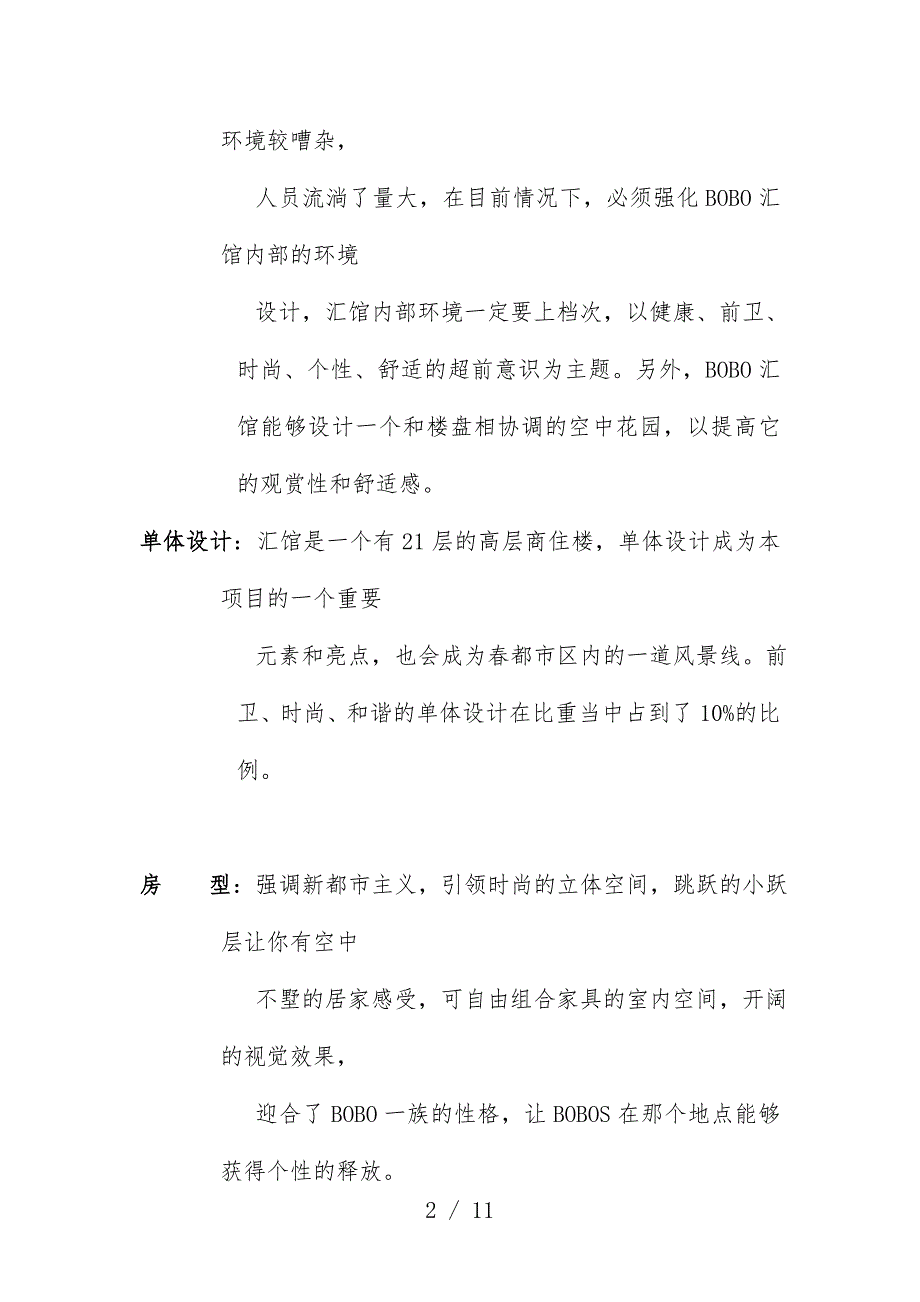 环境较嘈杂，
人员流淌了量大，在目前情况下，必须强化 BOBO 汇
馆内部的环境
设计，汇馆内部环境一定要上档次，以健康、前卫、
时尚、个性、舒适的超前意识为主题。另外，BOBO 汇
馆能够设计一个和楼盘相协调的空中花园，以提高它
的观赏性和舒适感。
单体设计：汇馆是一个有 21 层的高层商住楼，单体设计成为本
项目的一个重要
元素和亮点，也会成为春都市区内的一道风景线。前
卫、时尚、和谐的单体设计在比重当中占到了 10%的比
例。
房　　型：强调新都市主义，引领时尚的立体空间，跳跃的小跃
层让你有空中
不墅的居家感受，可自由组合家具的室内空间，开阔
的视觉效果，
迎合了 BOBO 一族的性格，让 BOBOS 在那个地点能够
获得个性的释放。
2 / 11